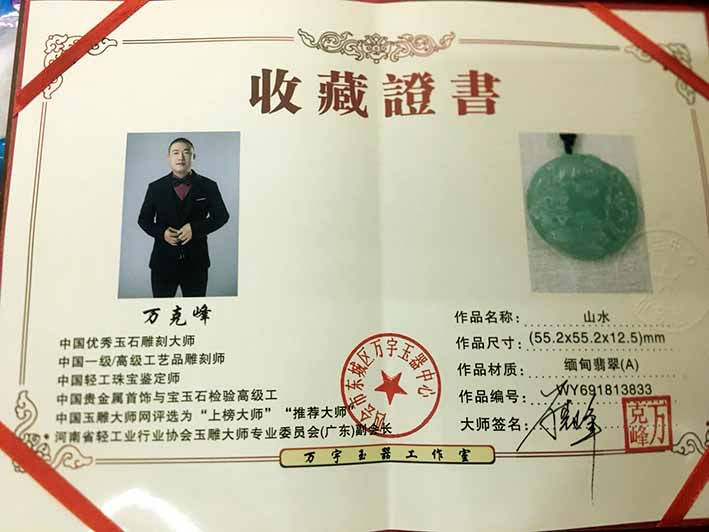 收藏證書
万克峰
中国优秀玉石雕刻大师
中国一级/高级工艺品雕刻师
中国轻工珠宝鉴定师
中国贵金属首饰与宝玉石检验高级工
中国玉雕大师网评选为“上榜大师”“推荐大师”
河南省轻工业行业协会玉雕大师专业委员会(广东)副会长
作品名称: 山水
作品尺寸: (55.2x55.2x12.5)mm
作品材质: 缅甸翡翠(A)
作品编号: WY691813833
大师签名:
万克峰
市东城区万宇玉器中心
万宇玉器工作室